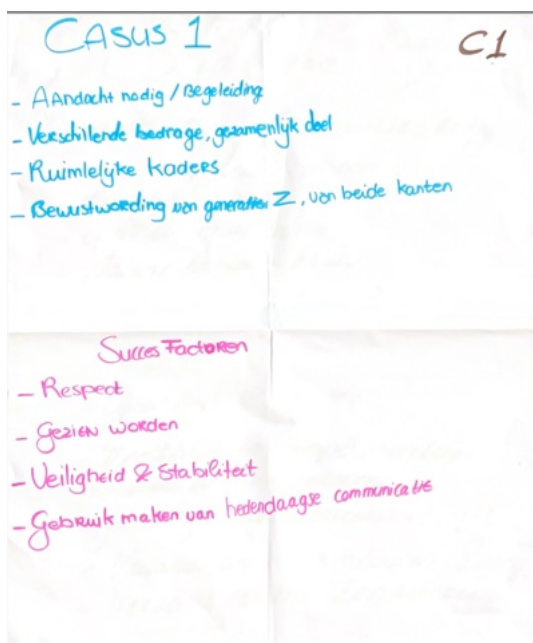 CASUS 1
C1
- AAndacht nodig / Begeleiding
- Verschillende bedrage, gezamenlijk doel
- Ruimlelijke kaders
- Bewustwording van generatie Z, van beide kanten
Succes Factoren
- Respect
- Gezien worden
- Veiligheid & Stabiliteit
- Gebruik maken van hedendaagse communicatie